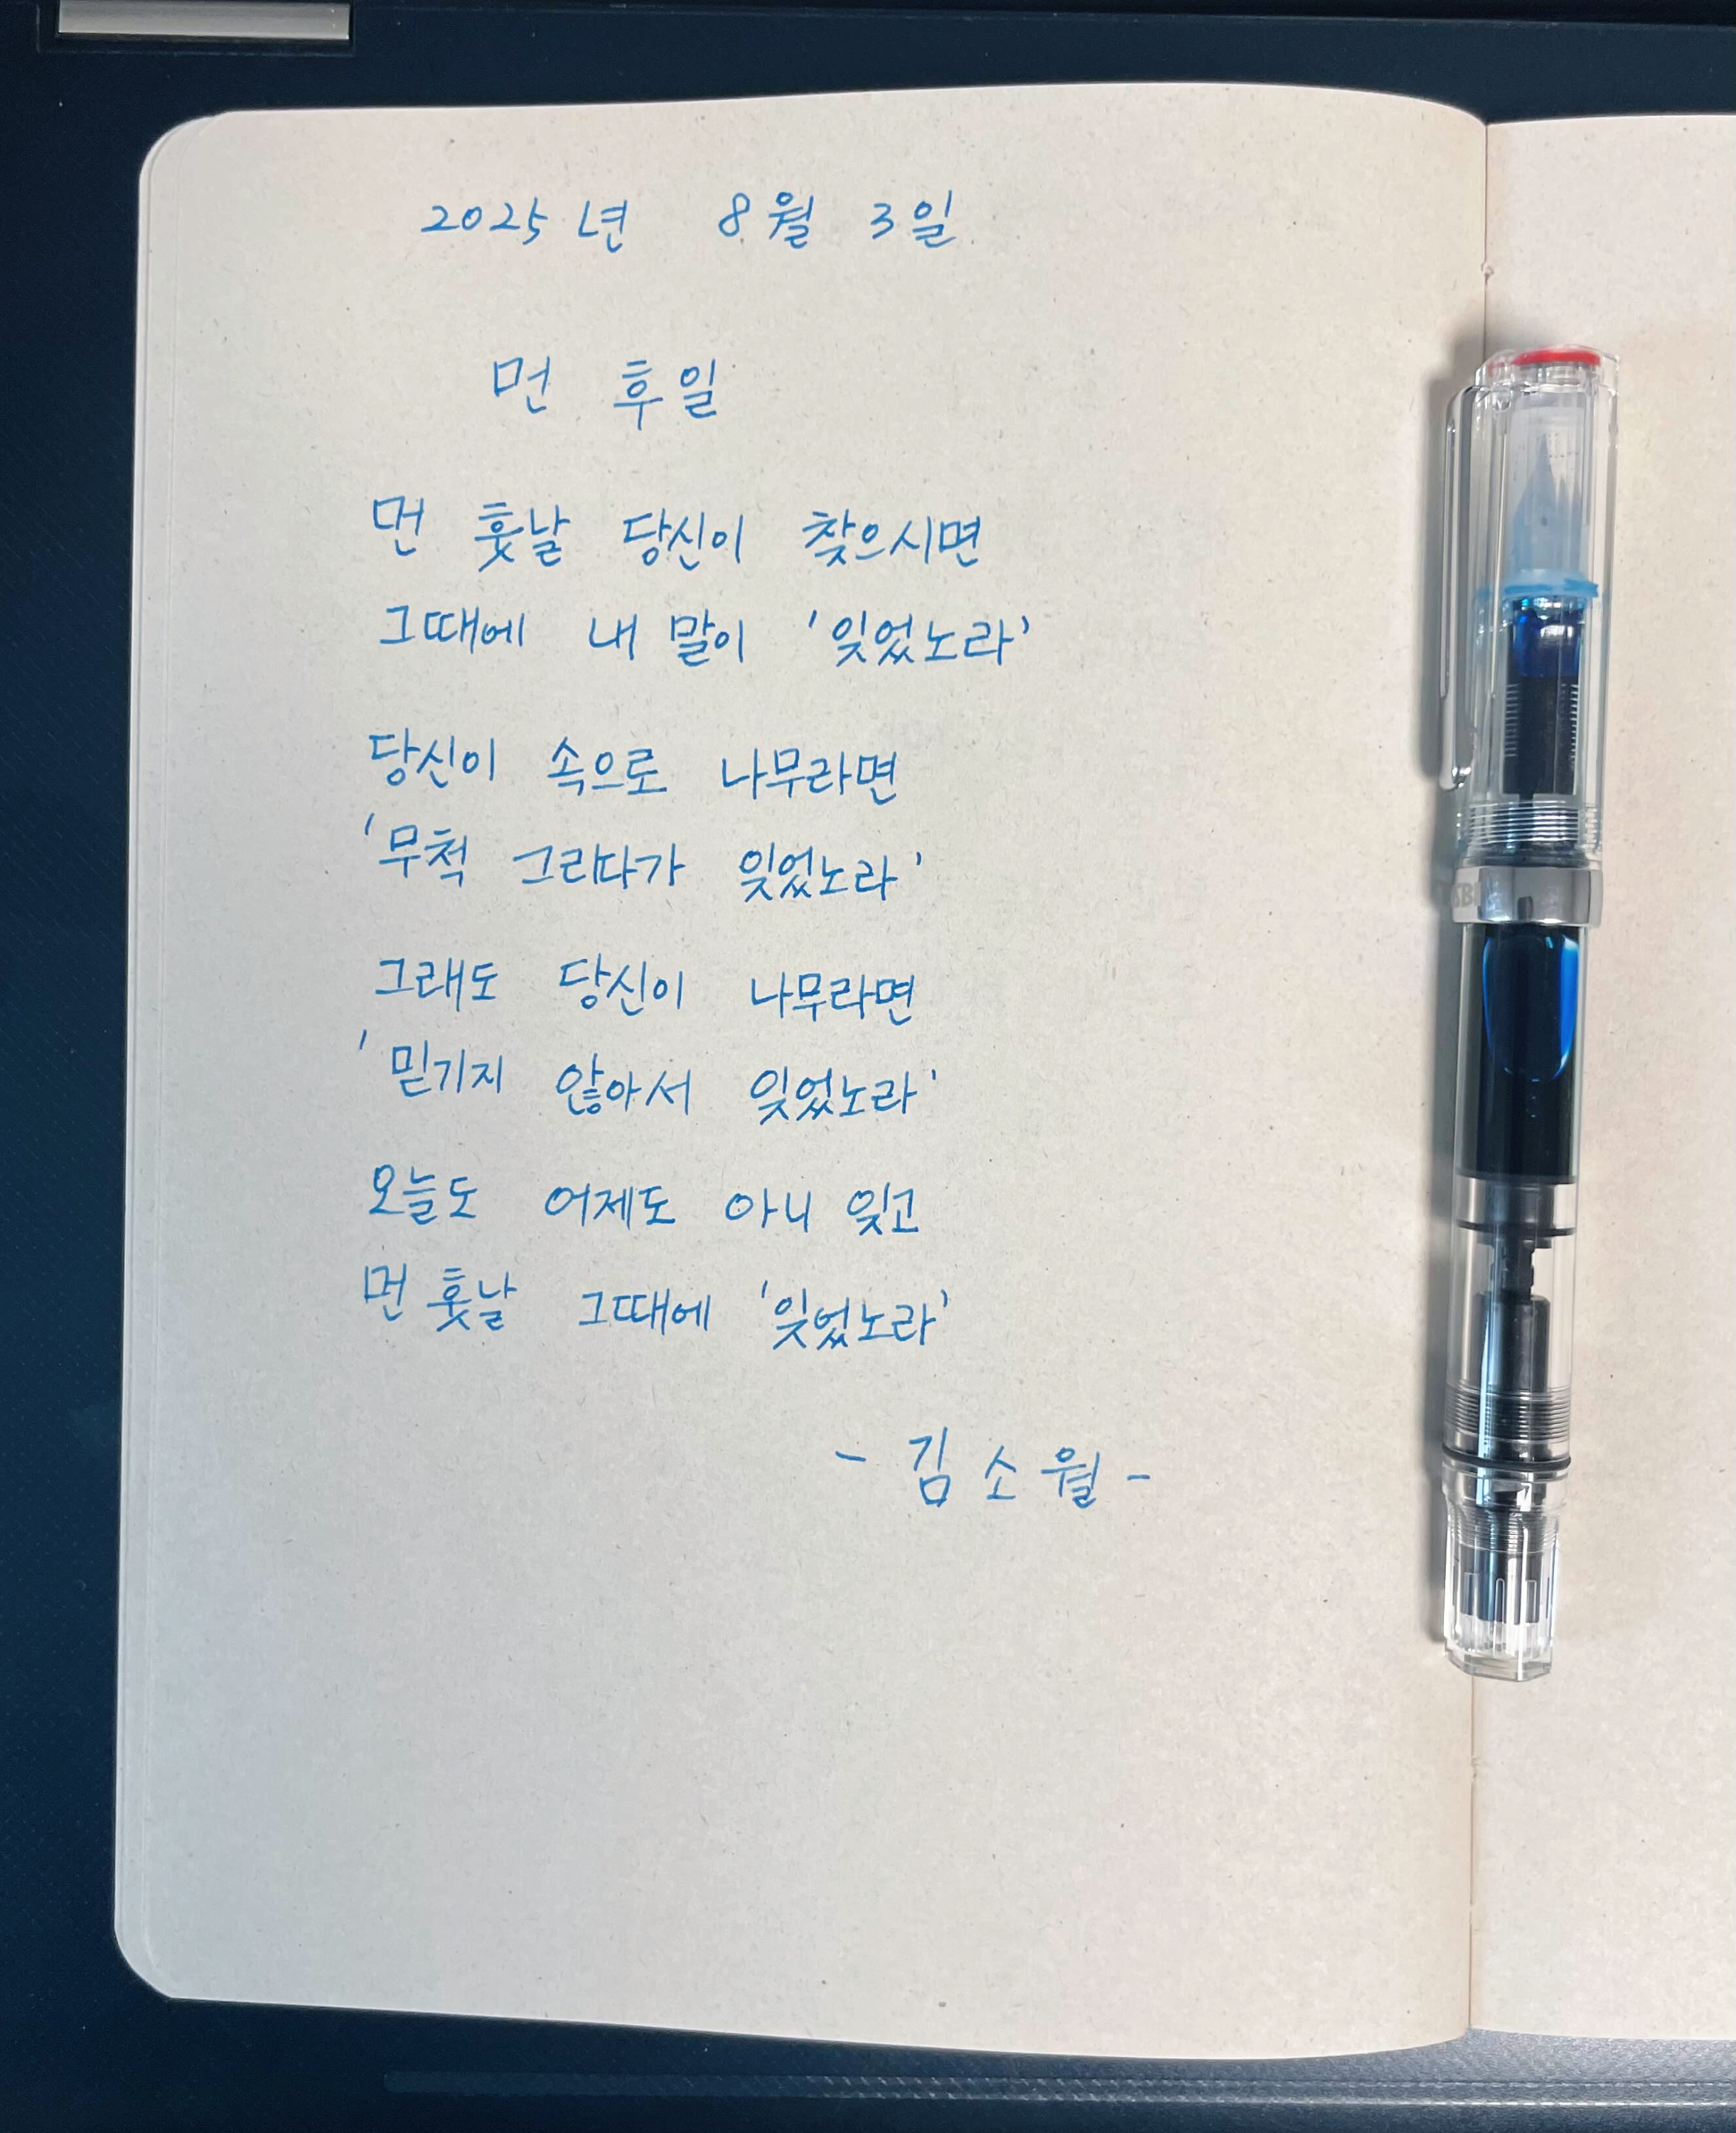 2025년 8월 3일
먼 후일
먼 훗날 당신이 찾으시면
그때에 내 말이 '잊었노라'
당신이 속으로 나무라면
'무척 그리다가 잊었노라'
그래도 당신이 나무라면
'믿기지 않아서 잊었노라'
오늘도 어제도 아니 잊고
먼 훗날 그때에 '잊었노라'
- 김소월 -